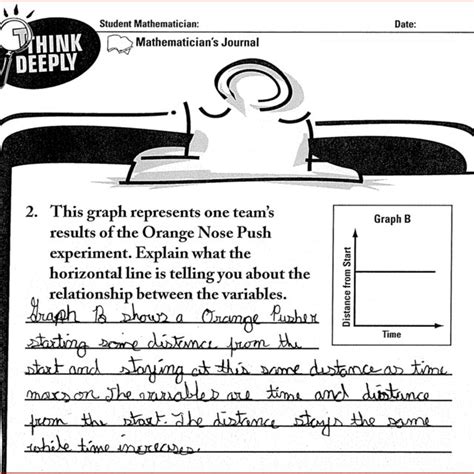 THINK
DEEPLY
Student Mathematician:
Date:
Mathematician's Journal
2. This graph represents one team's
results of the Orange Nose Push
experiment. Explain what the
horizontal line is telling you about the
relationship between the variables.
Graph B
Distance from Start
Time
Graph B shows a Orange Pusher
starting some distance from the
start and staying at this same destance as time
marson. The variables are time and distance
from the start. The distance stays the same
while time increases.